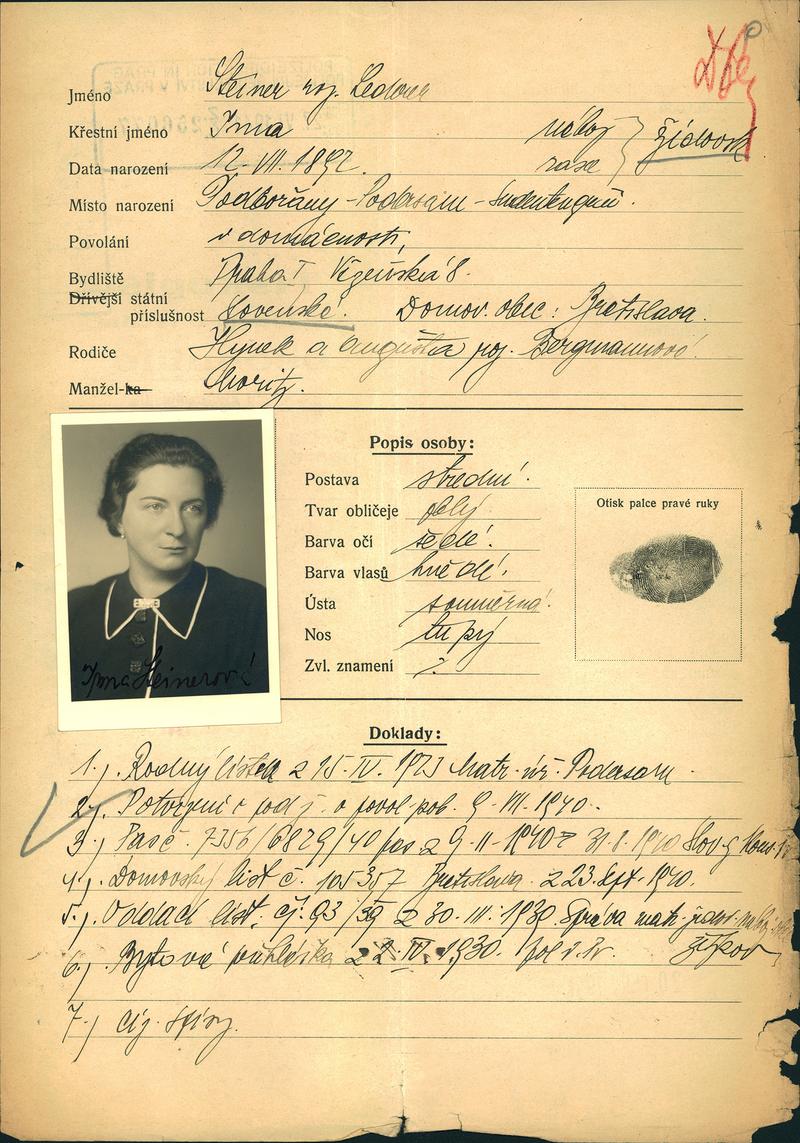 Jméno Steiner roz. Lederer
Křestní jméno Irma nábož. } židovsk
Data narození 12. VII. 1892. rasa
Místo narození Podbořany - Podersam - Sudentengau.
Povolání v domácnosti,
Bydliště Praha I, Vězeňská 8.
Dřívější státní
příslušnost slovenská. Domov. obec: Bratislava.
Rodiče Hynek a Augusta roz. Bergmannová.
Manžel-ka Moritz.
Popis osoby:
Postava střední.
Tvar obličeje oblý
Barva očí šedé.
Barva vlasů hnědé.
Ústa souměrná.
Nos tupý
Zvl. znamení
Otisk palce pravé ruky
Irma Steinerová
Doklady:
1.) Rodný lístek z 15. IV. 1923 Matr. úř. Podersam.
2.) Potvrzení o pod j. o povol. pob. 9. VII. 1940.
3.) Pas č. 7356/6829/40 9. II. 1940 31. 8. 1940 Slov. g.
4.) Domovský list č. 105357 Bratislava z 23. Sept. 1940.
5.) Oddací list. čj. 93/39 z 30. III. 1930. Správa matr. židov. nábož.
Žižkov
6.) Bytová přihláška z 2. IV. 1930. pol. ř.
7.) ciz. spisy.